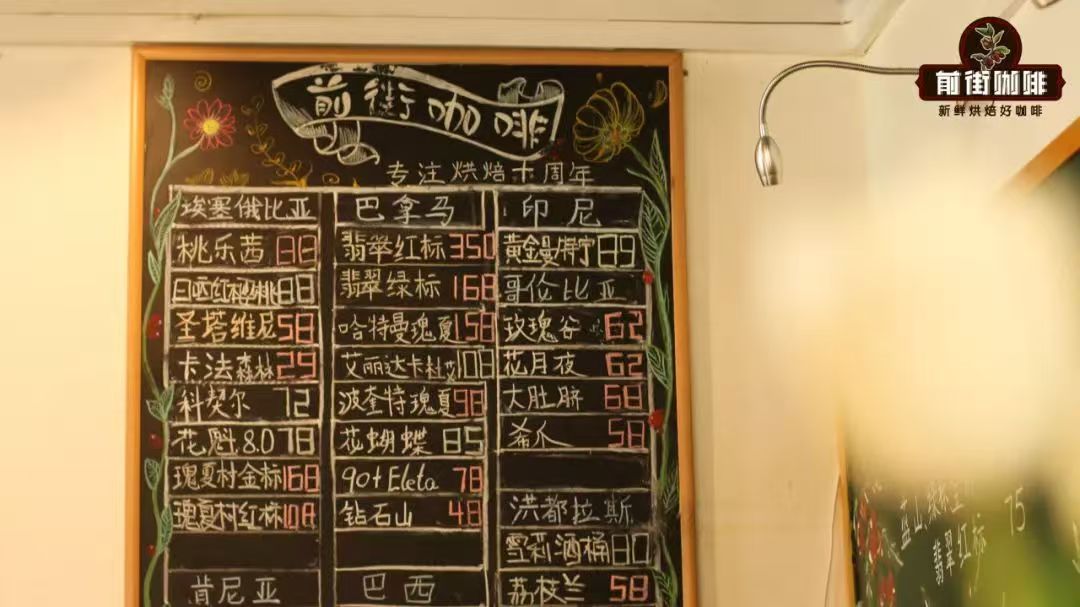 前街咖啡
新鲜烘焙好咖啡
前街咖啡
专注烘焙十周年
埃塞俄比亚
桃乐茜 88
日晒红樱桃 88
圣塔维尼 58
卡法森林 29
科契尔 72
花魁8.0 78
瑰夏村金标 168
瑰夏村红标 108
肯尼亚
巴拿马
翡翠红标 350
翡翠绿标 168
哈特曼瑰夏 158
艾丽达卡杜艾 108
波奎特瑰夏 98
花蝴蝶 85
90+Eleta 78
钻石山 48
巴西
印尼
黄金曼特宁 89
哥伦比亚
玫瑰谷 62
花月夜 62
大肚脐 68
希爪 58
洪都拉斯
雪莉酒桶 80
荔枝兰 58
蓝山
75
翡翠红标